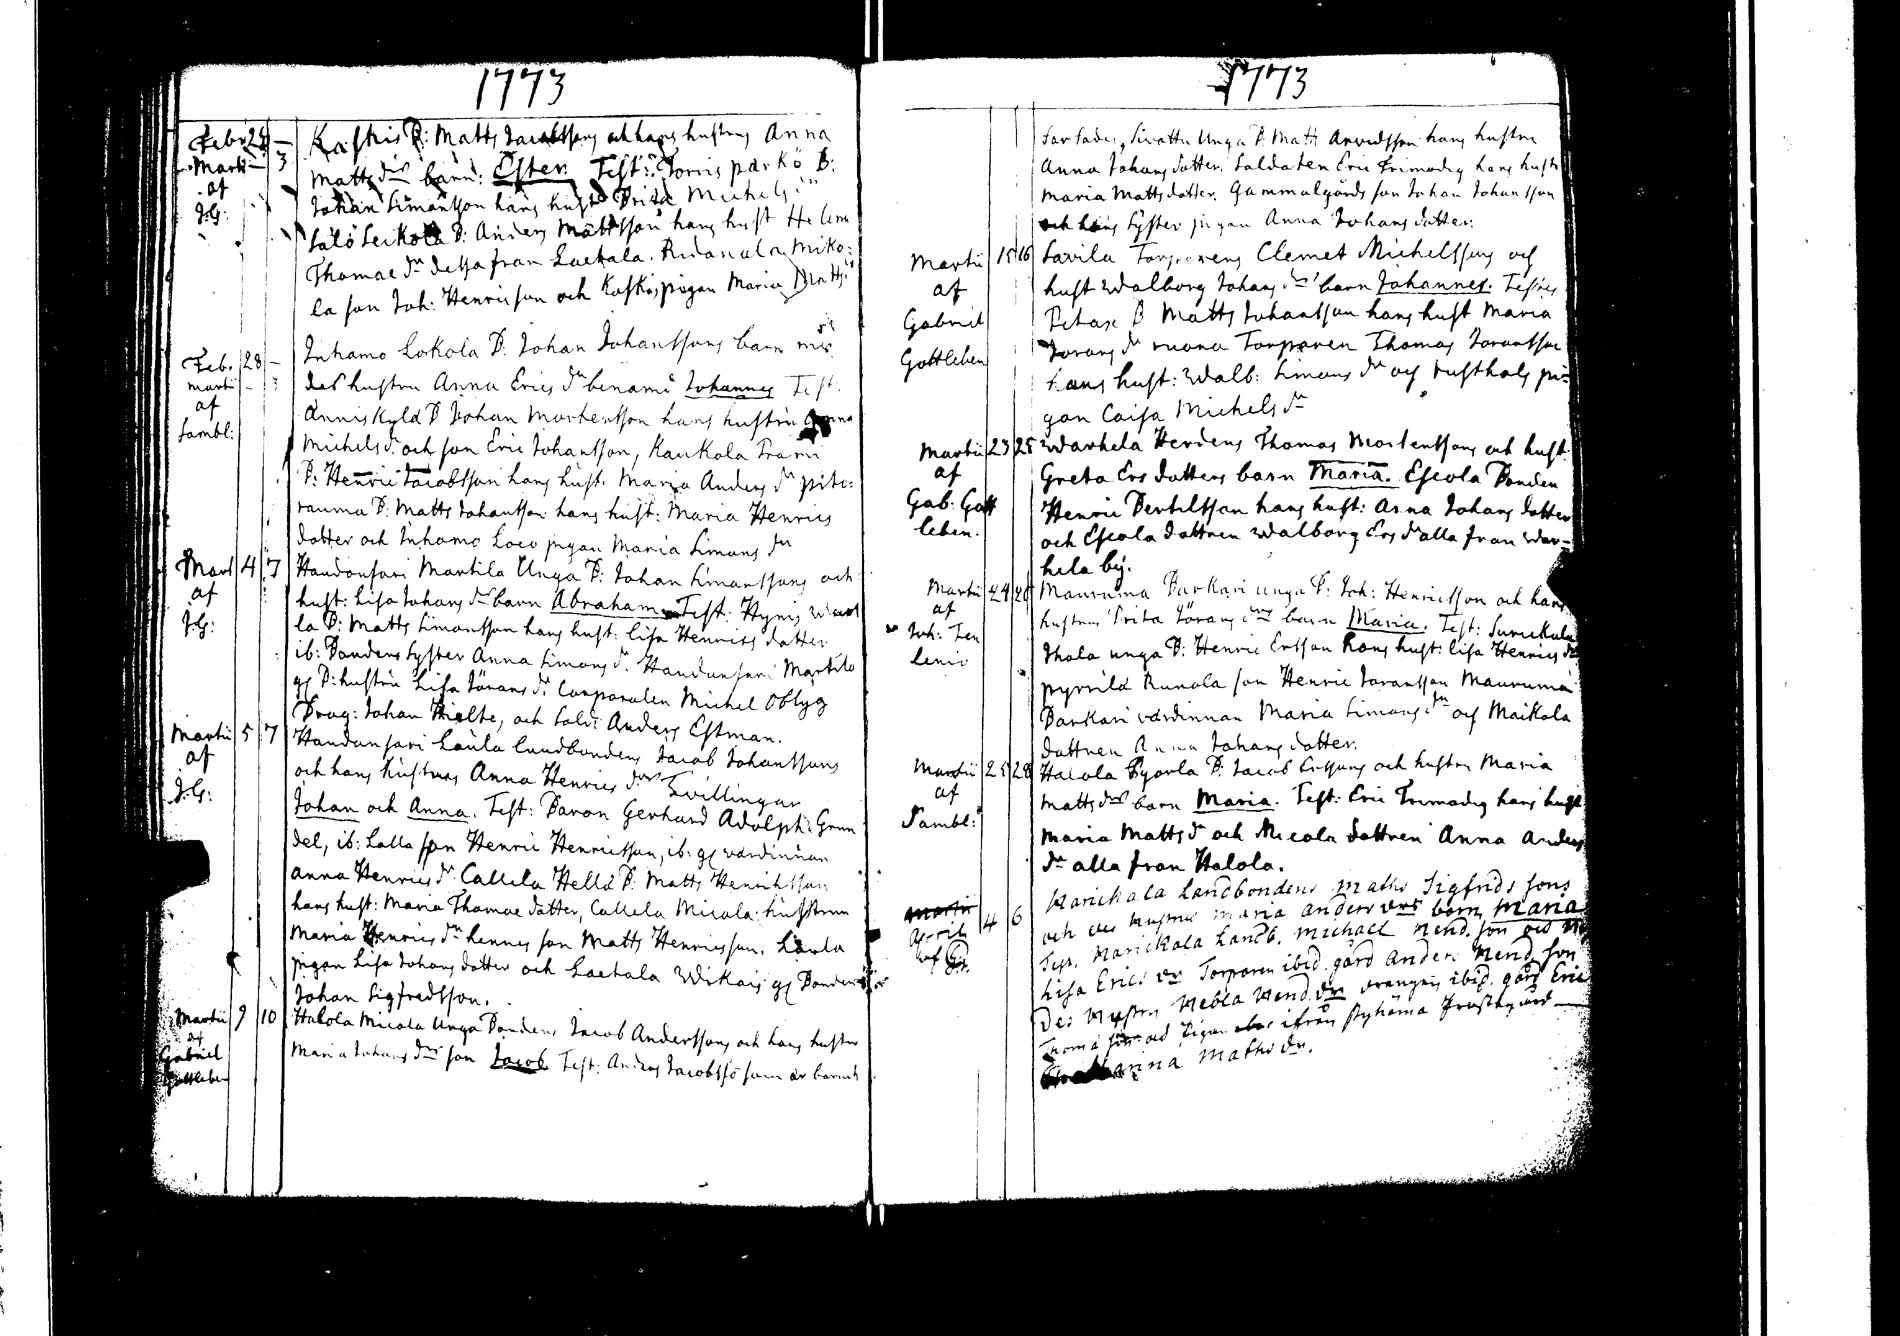 1773
Febr 28 — Kaskis B: Matts Jacobssons och hans hustrus Anna
Marti — 3 Matts drs barn: Ester. Test: Torris parko B:
af Johan Simonsson hans hust Brita Michels
J:G: Salo Seikola B: Anders Mattsson hans hust Helena
Thomae dr dessa fran Laekala. Miko-
la son Joh: Henricson och Kaskis pigan Maria Matts
Febr 28 — Inhamo Lokola B. Johan Johanssons barn med
Martii — 3 dess hustru Anna Erics dr benamd Johannes Test:
af Anniskyla B Johan Mortensson hans hustru Anna
Sambl: Michels dr och son Eric Johansson, Kaukola
B: Henric Jacobsson hans hust. Maria Anders dr
rauma B: Matts Johansson hans hust: Maria Henrics
dotter och Inhamo Loco pigan Maria Simons dr
Mart 4 7 Haudonsari Martila Unga B: Johan Simonssons och
af hust: Lisa Johans drs barn Abraham Test: Hynnis
J:G: la B: Matts Simonsson hans hust: Lisa Henrics dotter
ib: Bondens Syster Anna Simons dr Haudonsari Martila
gl B: hustru Lisa Jörans dr Corporalen Michel Oblyg
Drag: Johan Hielte, och Sold: Anders Estman.
Martii 5 7 Haudonsari Laula Landbondens Jacob Johanssons
af och hans hustrus Anna Henrics drs Tvillingar
J:G: Johan och Anna. Test: Baron Gerhard Adolph Grun
del, ib: Lalla son Henric Henricsson, ib: gl värdinnan
Anna Henrics dr Callela Hella B: Matts Henrichsson
hans hust: Maria Thomae dotter, Callela Micola: hustrun
Maria Henrics dr hennes son Matts Henricsson. Laula
pigan Lisa Johans dotter och Laekala gl Bonden
Johan Sigfredsson.
Martii 9 10 Halola Micola Unga Bondens Jacob Anderssons och hans hustrus
af Maria Johans drs son Jacob Test: Anders Jacobsso som är barnets
Gabriel
Gottleben
1773
Sivattu Unga B: Matts Arvidsson hans hustru
Anna Johans dotter. Soldaten Eric Trimodig hans hustr
Maria Matts dotter. Gammalgårds son Johan Johansson
och hans Syster pigan Anna Johans dotter.
Martii 15 16 Savila Torparens Clemet Michelssons och
af hust Walborg Johans drs barn Johannes. Testes
Gabriel B Matts Johansson hans hust Maria
Gottleben Jorans dr Torparen Thomas Joransson
hans hust: Walb: Simons dr och Rusthols pi=
gan Caisa Michels dr
Martii 23 25 Warhela Herdens Thomas Mortenssons och hust:
af Greta Ers dotters barn Maria. Escola Bonden
Gab: Gott Henric Bertilsson hans hust: Anna Johans dotter
leben. och Escola dottren Walborg Ers dr alla fran War=
hela by.
Martii 24 28 Mauruma Barkari unga B: Joh: Henricsson och hans
af hustrus Brita Jörans drs barn Maria. Test:
Joh: Ten Ihala unga B: Henric Ersson hans hust: Lisa Henrics dr
lenio Pyrrila Runola son Henric Joransson Mauruma
Barkari värdinnan Maria Simons dr och Maikola
dottren Anna Johans dotter.
Martii 25 28 Halola Pyorla B: Jacob Erssons och hustru Maria
af Matts drs barn Maria. Test: Eric Trimodig hans hust
Sambl: Maria Matts dr och Micola dottren Anna Anders
dr alla fran Halola.
Aprill 4 6 Karickala Landbondens Maths Sigfrids sons
af och des hustrus Maria Anders drs barn Maria
Test. Karickala Landb. Michael Hend. son
Lisa Erics dr Torparen ibid. gård Anders Hend. son
des hustru Hebla Hend. dr drengen ibid. gård Eric
Thoma son och Pigan ifrån Pyhäma Prostegård —
Maths dr.